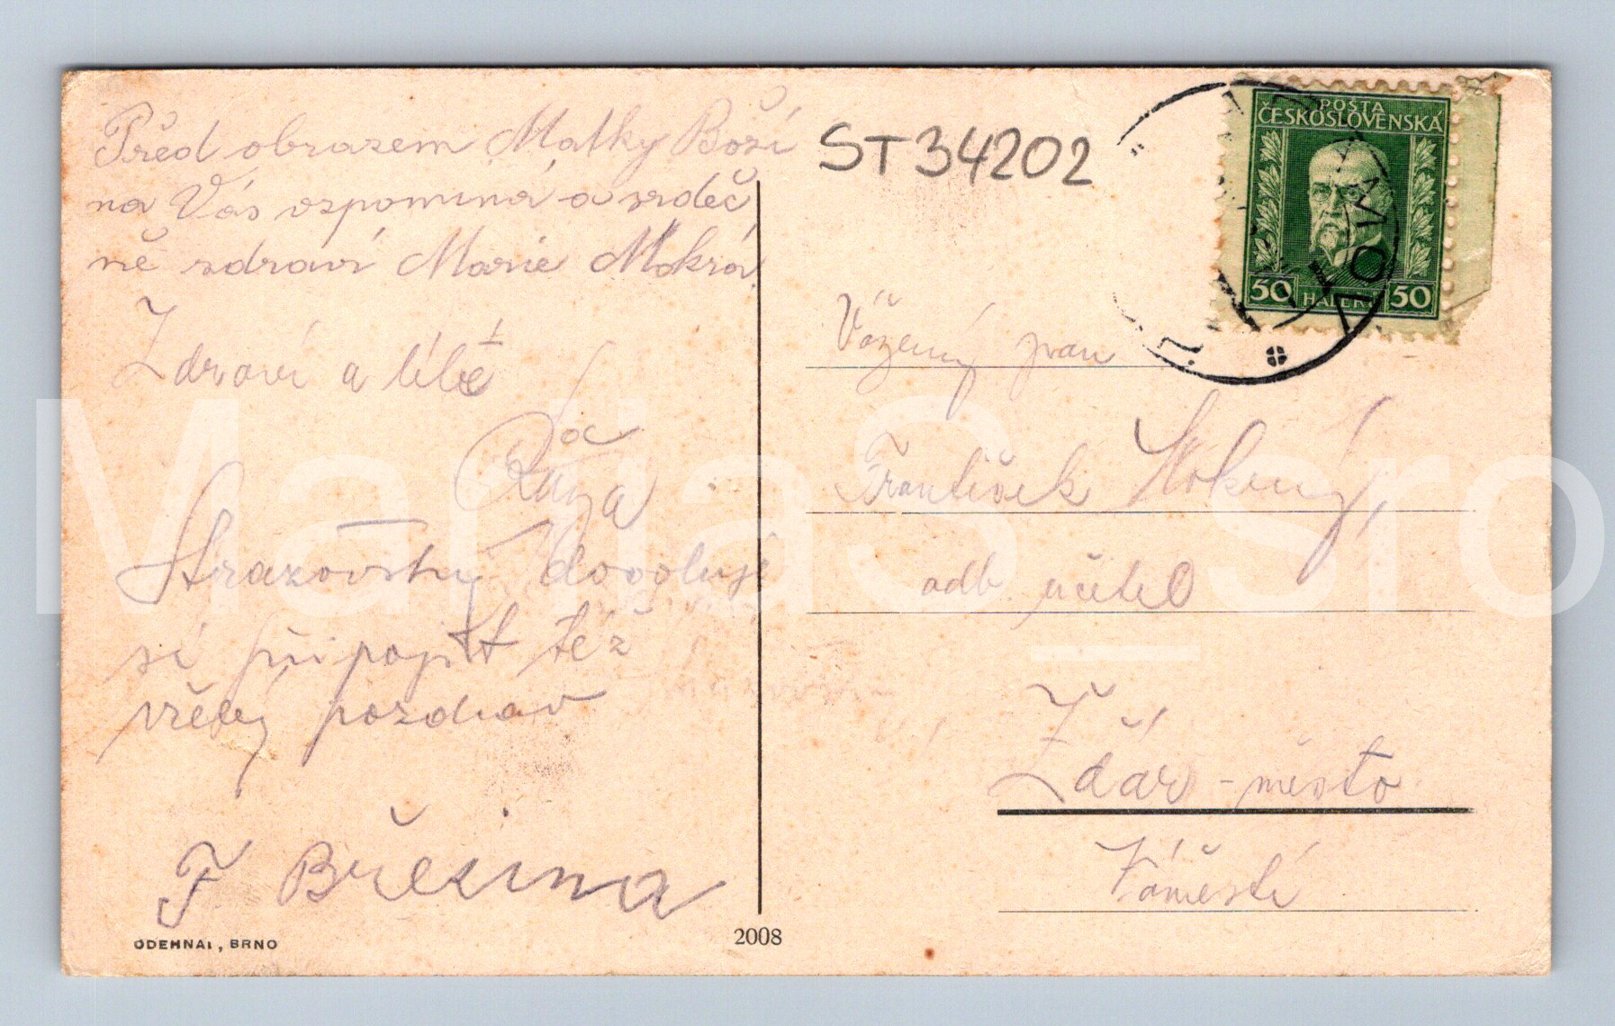 Před obrazem Matky Boží
na Vás vzpomíná a srdeč
ně zdraví Marie Mokrá.
Zdraví a líbá
Růža
Strazovský dovoluje
si připojit též
vřelý pozdrav
F Březina
ODEHNAL, BRNO
2008
ST34202
POŠTA
ČESKOSLOVENSKÁ
50 HALÉŘŮ 50
Vážený pan
František Mokrý,
odb. učitel
Žďár - město
Náměstí
MartiaS_sro